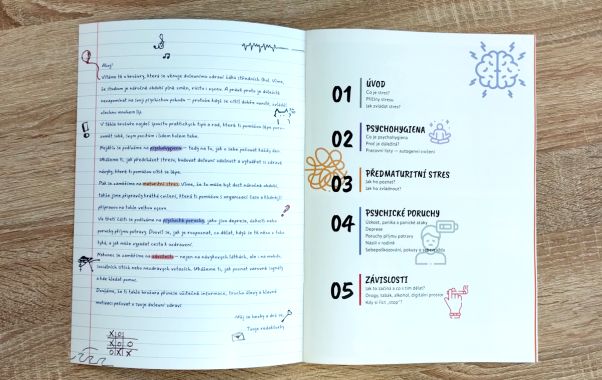 Ahoj!
Vítáme tě u brožury, která se věnuje duševnímu zdraví žáků středních škol. Víme,
že studium je náročné období plné změn, růstu i výzev. A právě proto je důležité
nezapomínat na svoji psychickou pohodu – protože když se cítíš dobře uvnitř, zvládneš
všechno mnohem líp.
V téhle brožuře najdeš spoustu praktických tipů a rad, které ti pomůžou lépe
sobě, svým pocitům i lidem kolem tebe.
Nejdřív se podíváme na psychohygienu – tedy na to, jak o sebe pečovat každý den.
Ukážeme ti, jak předcházet stresu, budovat duševní odolnost a vytvářet si zdravé
návyky, které ti pomůžou cítit se lépe.
Pak se zaměříme na maturitní stres. Víme, že to může být dost náročné období,
takže jsme připravili krátké cvičení, které ti pomůžou s organizací času a klidnější
přípravou na tuhle velkou výzvu.
Ve třetí části se podíváme na psychické poruchy, jako jsou deprese, úzkosti nebo
poruchy příjmu potravy. Dozvíš se, jak je rozpoznat, co dělat, když se to něco z toho
týká, a jak může vypadat cesta k uzdravení.
Nakonec se zaměříme na závislosti – nejen na návykových látkách, ale i na mobilu,
sociálních sítích nebo nezdravých vztazích. Ukážeme ti, jak poznat varovné signály
a kde hledat pomoc.
Doufáme, že ti tahle brožura přinese užitečné informace, trochu úlevy a hlavně
motivaci pečovat o svoje duševní zdraví.
Měj se hezky a drž se,
Tvoje redaktorky
X O
X O O
O X X
01
ÚVOD
Co je stres?
Příčiny stresu
Jak zvládat stres?
02
PSYCHOHYGIENA
Co je psychohygiena
Proč je důležitá?
Pracovní listy — autogenní cvičení
03
PŘEDMATURITNÍ STRES
Jak ho poznat?
Jak ho zvládnout?
04
PSYCHICKÉ PORUCHY
Úzkost, panika a panické ataky
Deprese
Poruchy příjmu potravy
Násilí v rodině
Sebepoškozování, pokusy o
05
ZÁVISLOSTI
Jak to začíná a co s tím dělat?
Drogy, tabák, alkohol, digitální prostor
Kdy si říct „stop"?